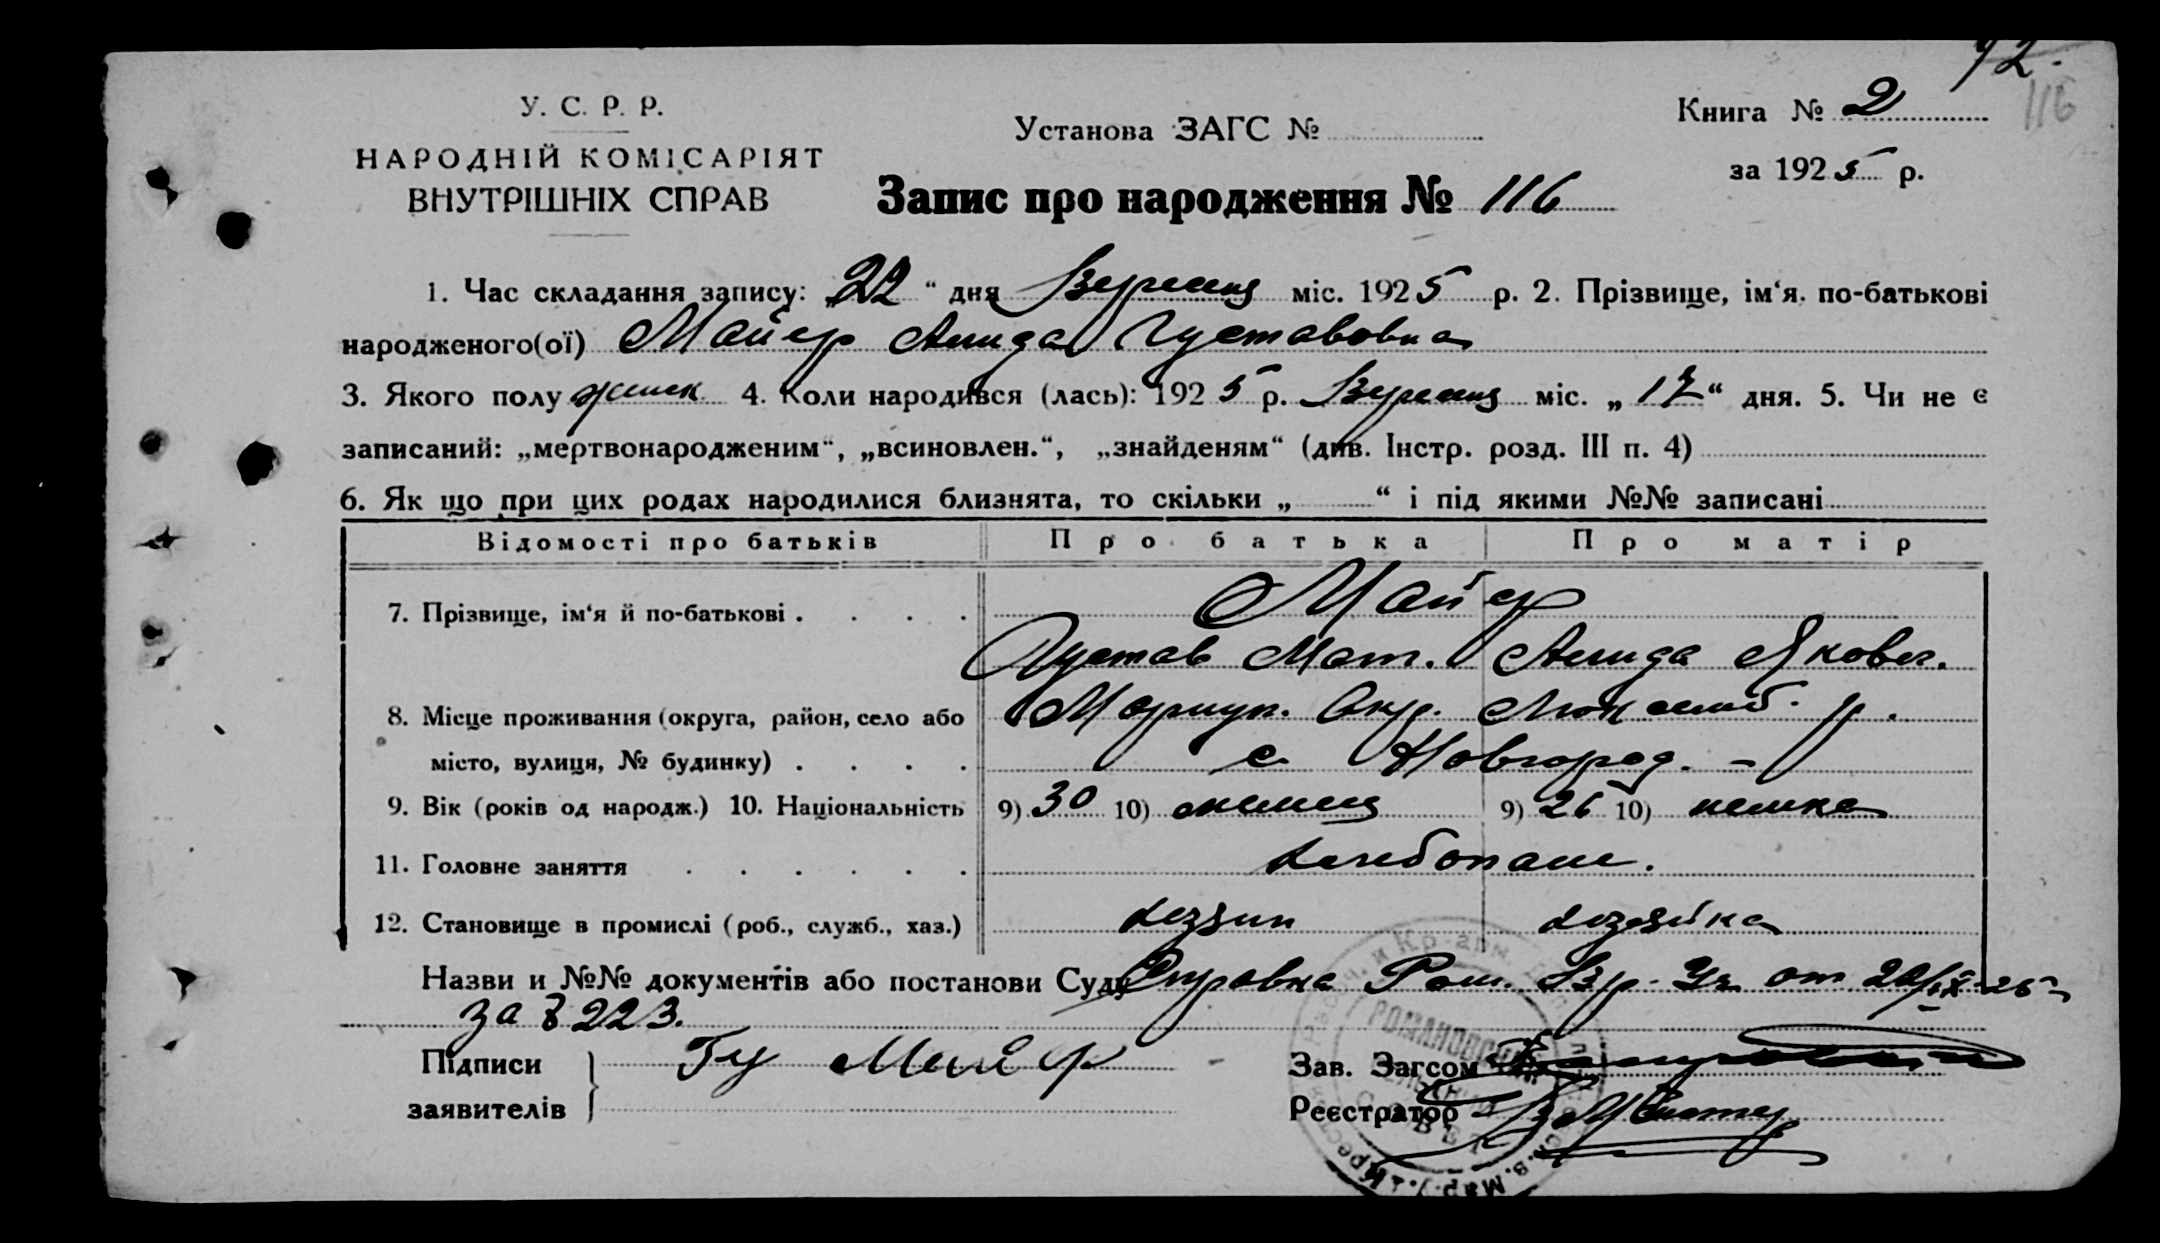 92.
116
У. С. Р. Р.
НАРОДНІЙ КОМІСАРІЯТ
ВНУТРІШНІХ СПРАВ
Установа ЗАГС №
Запис про народження № 116
Книга № 2
за 1925 р.
1. Час складання запису: „22“ дня Вересня міс. 1925 р. 2. Прізвище, ім‘я, по-батькові
народженого(ої) Майер Алида Густавовна
3. Якого полу женск. 4. Коли народився (лась): 1925 р. Вересня міс. „12“ дня. 5. Чи не є
записаний: „мертвонародженим“, „всиновлен.“, „знайденям“ (див. Інстр. розд. III п. 4)
6. Як що при цих родах народилися близнята, то скільки „ “ і під якими №№ записані
Відомості про батьків Про батька Про матір
7. Прізвище, ім‘я й по-батькові Майер
Густав Мат. Алида Яковл.
8. Місце проживання (округа, район, село або Мариуп. Окр. Люксемб. р.
місто, вулиця, № будинку) с. Новгород.
9. Вік (років од народж.) 10. Національність 9) 30 10) немец 9) 26 10) немка
11. Головне заняття хлебопаш.
12. Становище в промислі (роб., служб., хаз.) хозяин хозяйка
Назви и №№ документів або постанови Суду Справка Ром. от 20/IX-25
за № 223.
Підписи Гу Майер
заявителів
Зав. Загсом
Реєстратор
РОМАНОВСКИЙ
СОВЕТ